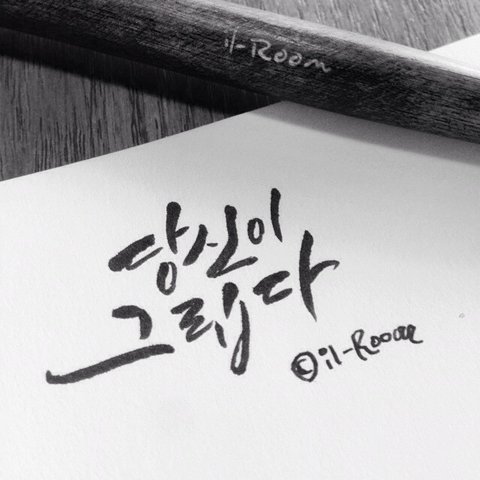 il-Room
당신이
그립다
©il-Room